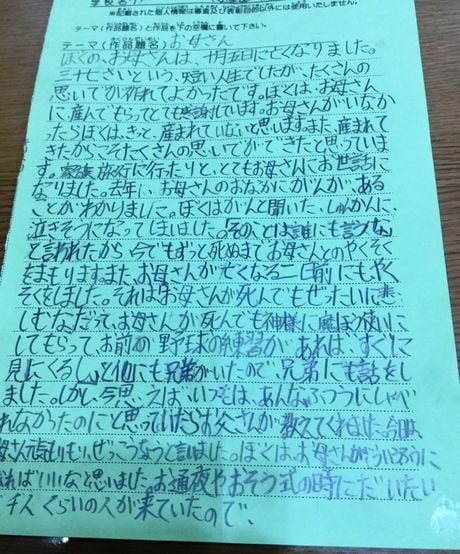 学校名
※記載された個人情報は審査及び表彰目的以外には使用いたしません。
テーマ(作品題名)と作品を下の空欄に書いて下さい。
テーマ(作品題名)お母さん
ぼくの、お母さんは、十月五日に亡くなりました。
三十七さいという、短い人生でしたが、たくさんの
思いでが作れてよかったです。ぼくは、お母さん
に、産んでもらってとても感謝しています。お母さんがいなか
ったらぼくは、きっと、産まれていないと思います。また、産まれて
きたからこそたくさんの思いでができたと思っていま
す。家族旅行に行ったりと、とてもお母さんにお世話に
なりました。去年に、お母さんのおなかにがんが、ある
ことがわかりました。ぼくはがんと聞いた、しゅんかんに、
泣きそうになってしまいました。「そのことは誰にも言うな」
と言われたから今でもずっと死ぬまでお母さんとのやくそく
をまもります。また、お母さんが亡くなる二日前にもやく
そくをしました。それはお母さんが死んでもぜったいに悲
しむなだって、お母さんが死んでも神様に魔ぼう使いに
してもらって、お前の野球の練習があれば、すぐに
見にくるし」と他にも兄弟がいたので、兄弟にも話をし
ました。しかし、今思えばいつもは、あんなふつうにしゃべ
れなかったのにと思っていたらお父さんが教えてくれました。今日は、
母さん
と言いました。ぼくは、お母さんが
ればいいなと思いました。お通夜やおそう式の時にだいたい
千人くらいの人が来ていたので、